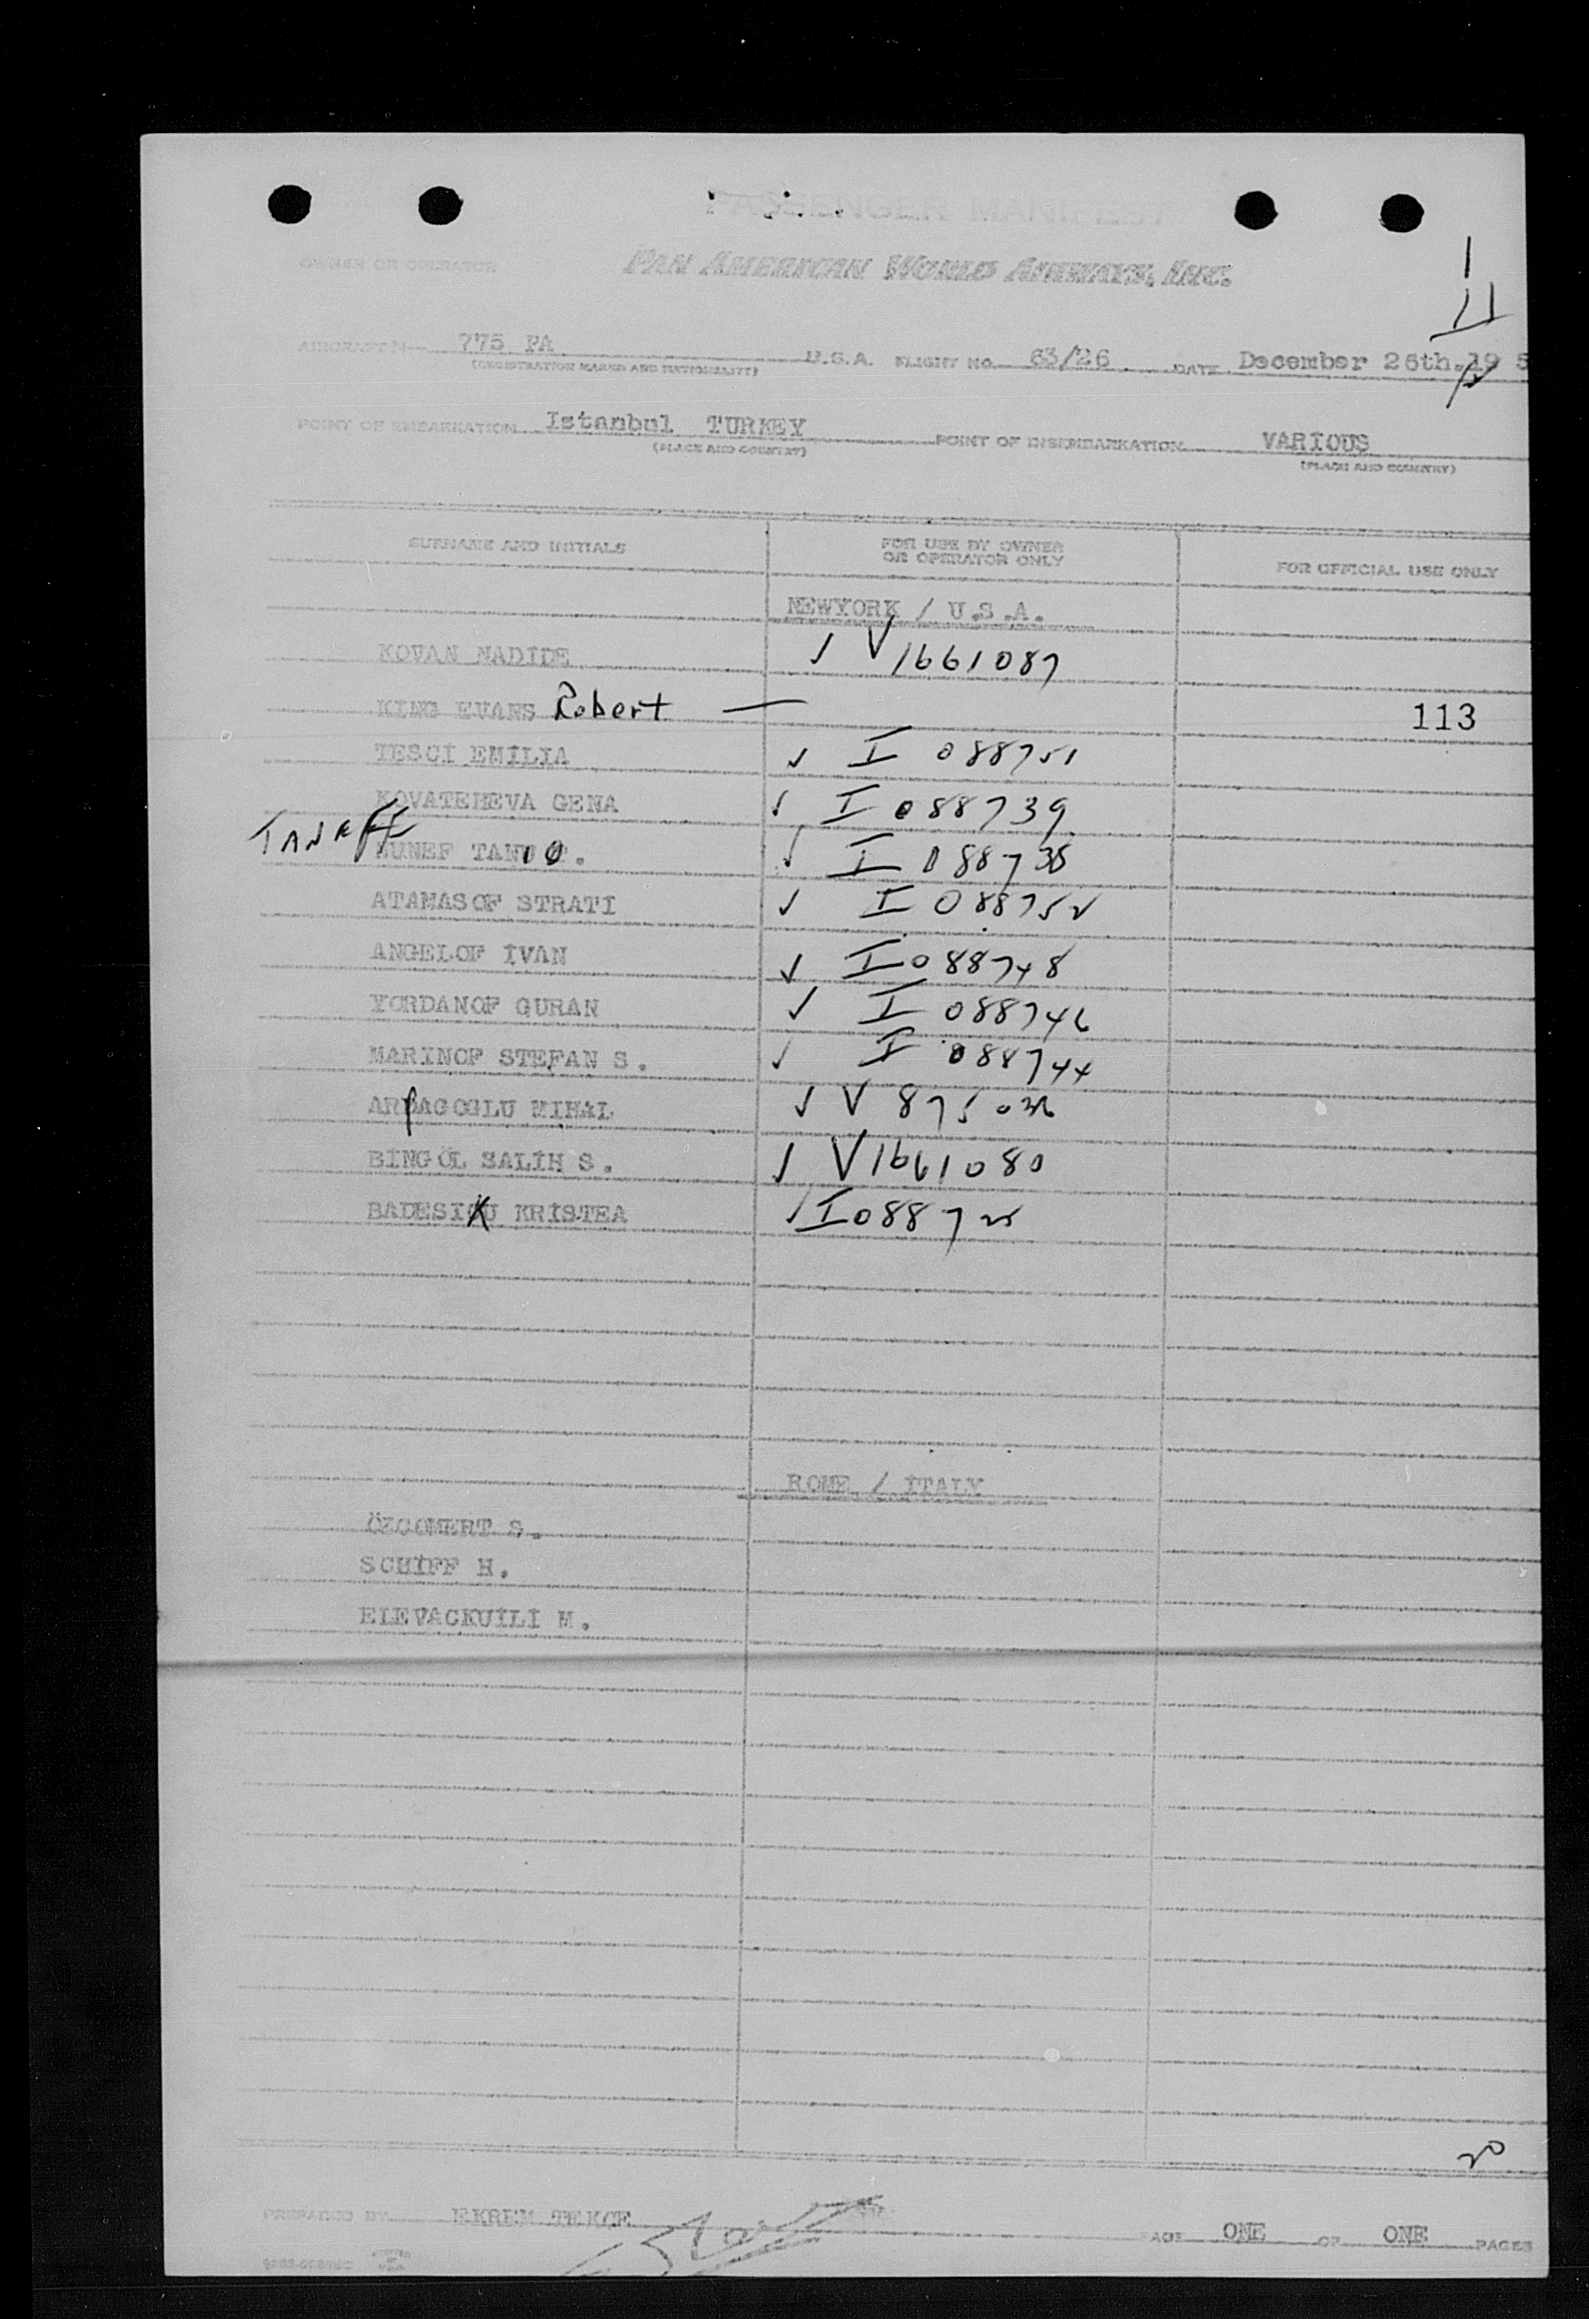 PASSENGER MANIFEST
OWNER OR OPERATOR PAN AMERICAN WORLD AIRWAYS, INC.
1
11
AIRCRAFT N— 775 PA U.S.A. FLIGHT NO. 63/26 DATE December 26th. 195
(REGISTRATION MARKS AND NATIONALITY)
POINT OF EMBARKATION Istanbul TURKEY POINT OF DISEMBARKATION VARIOUS
(PLACE AND COUNTRY) (PLACE AND COUNTRY)
SURNAME AND INITIALS FOR USE BY OWNER OR OPERATOR ONLY FOR OFFICIAL USE ONLY
NEWYORK / U.S.A.
KOVAN NADIDE ✓ V 1661087
KING EVANS Robert — 113
TESCİ EMİLİA ✓ I 088751
KOVATEHEVA GENA ✓ I 088739
TANEFF TAN ✓ I 088738
ATAMASOF STRATI ✓ I 088752
ANGELOF İVAN ✓ I 088748
YORDANOF GURAN ✓ I 088746
MARINOF STEFAN S. ✓ I 088744
ARPAGOGLU MIHAL ✓ V 875
BİNGÖL SALİH S. ✓ V 1661080
BADESIKU KRİSTEA ✓ I 0887
ROME / İTALY
ÖZCOMERT S.
SCHİFF H.
ELEVACKUİLİ M.
20
PREPARED BY EKREM TEKCE PAGE ONE OF ONE PAGES
PRINTED IN U.S.A.